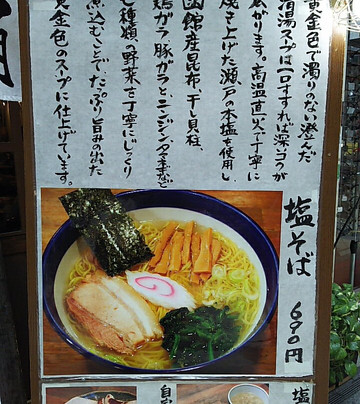 黄金色で濁りのない澄んだ
清湯スープは一口すすれば深いコクが
広がります。高温直火で丁寧に
焼き上げた瀬戸の本塩を使用し、
函館産昆布、干し貝柱、
鶏ガラ、豚ガラと、ニンジン、タマネギなど
七種類の野菜を丁寧にじっくり
煮込むことで、たっぷり旨みの出た
黄金色のスープに仕上げています。
塩そば
690円
塩
自